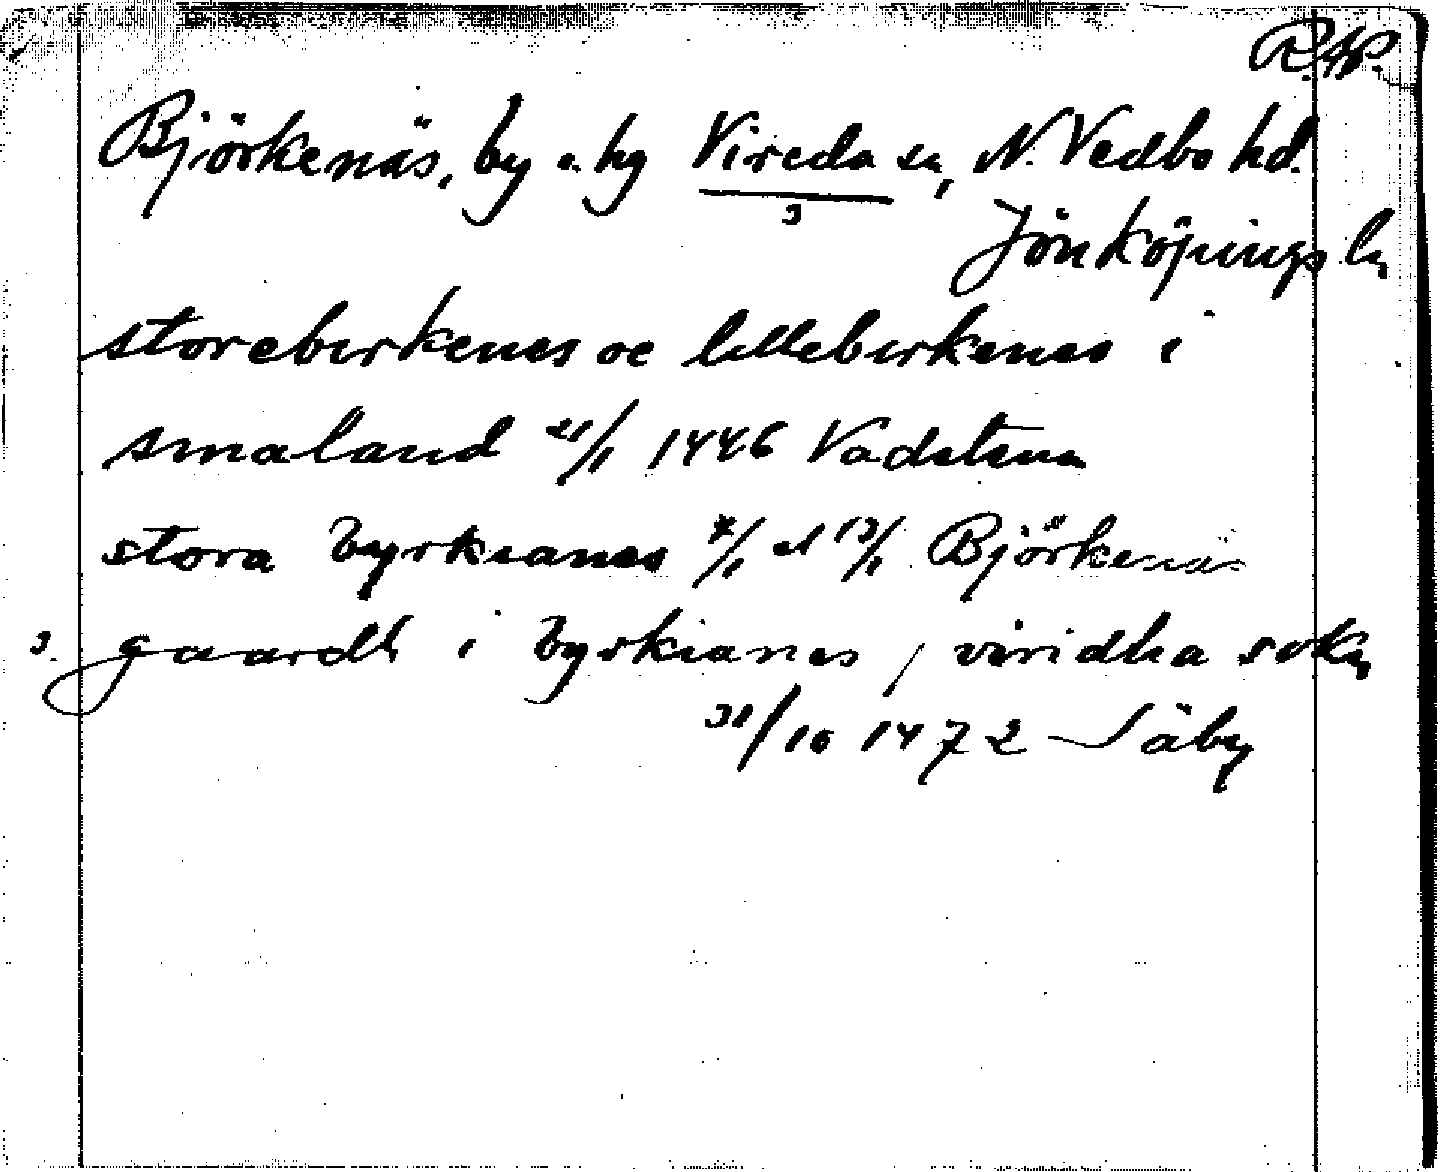 R.Ap.
Björkenäs, by o. hg Vireda sn, N. Vedbo hd.
3
Jönköpings ln
storebirkenes oc lillebirkenes i
smaland 21/1 1446 Vadstena
stora byrkianes 7/1 el 13/1 Björkenäs
3. gaardh i byrkianes, viridha sokn
31/10 1472 Säby